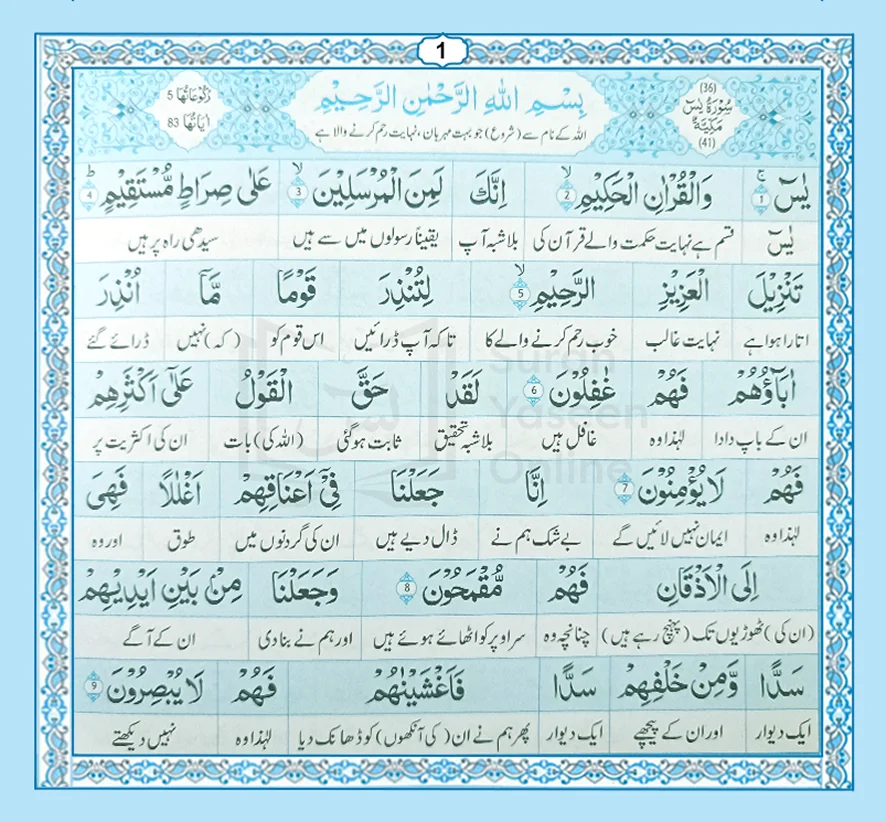 1
رُكُوْعَاتُهَا 5
اٰيَاتُهَا 83
بِسْمِ اللّٰهِ الرَّحْمٰنِ الرَّحِيْمِ
اللہ کے نام سے (شروع) جو بہت مہربان، نہایت رحم کرنے والا ہے
(36)
سُوْرَةُ يٰسٓ
مَكِّيَّةٌ
(41)
يٰسٓ ۚ 1 وَالْقُرْاٰنِ الْحَكِيْمِ ۙ 2 اِنَّكَ لَمِنَ الْمُرْسَلِيْنَ ۙ 3 عَلٰى صِرَاطٍ مُّسْتَقِيْمٍ ؕ 4
یٰسٓ قسم ہے نہایت حکمت والے قرآن کی بلاشبہ آپ یقیناً رسولوں میں سے ہیں سیدھی راہ پر ہیں
تَنْزِيْلَ الْعَزِيْزِ الرَّحِيْمِ ۙ 5 لِتُنْذِرَ قَوْمًا مَّاۤ اُنْذِرَ
اتارا ہوا ہے نہایت غالب خوب رحم کرنے والے کا تاکہ آپ ڈرائیں اس قوم کو (کہ) نہیں ڈرائے گئے
اٰبَآؤُهُمْ فَهُمْ غٰفِلُوْنَ 6 لَقَدْ حَقَّ الْقَوْلُ عَلٰٓى اَكْثَرِهِمْ
ان کے باپ دادا لہٰذا وہ غافل ہیں بلاشبہ تحقیق ثابت ہوگئی (اللہ کی) بات ان کی اکثریت پر
فَهُمْ لَا يُؤْمِنُوْنَ 7 اِنَّا جَعَلْنَا فِيْٓ اَعْنَاقِهِمْ اَغْلٰلًا فَهِىَ
لہٰذا وہ ایمان نہیں لائیں گے بے شک ہم نے ڈال دیے ہیں ان کی گردنوں میں طوق اور وہ
اِلَى الْاَذْقَانِ فَهُمْ مُّقْمَحُوْنَ 8 وَجَعَلْنَا مِنْۢ بَيْنِ اَيْدِيْهِمْ
(ان کی) ٹھوڑیوں تک (پہنچ رہے ہیں) چنانچہ وہ سر اوپر کو اٹھائے ہوئے ہیں اور ہم نے بنا دی ان کے آگے
سَدًّا وَّمِنْ خَلْفِهِمْ سَدًّا فَاَغْشَيْنٰهُمْ فَهُمْ لَا يُبْصِرُوْنَ 9
ایک دیوار اور ان کے پیچھے ایک دیوار پھر ہم نے ان (کی آنکھوں) کو ڈھانک دیا لہٰذا وہ نہیں دیکھتے
Surah
Yaseen
Online